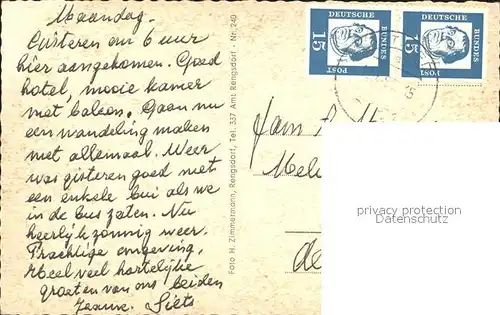 Maandag.
Gisteren om 6 uur
hier aangekomen. Goed
hotel, mooie kamer
met balcon. Gaan nu
een wandeling maken
met allemaal. Weer
was gisteren goed met
een enkele bui als we
in de bus zaten. Nu
heerlijk zonnig weer.
Prachtige omgeving.
Heel veel hartelijke
groeten van ons beiden
Siets
Foto H. Zimmermann, Rengsdorf, Tel. 337 Amt Rengsdorf - Nr. 240
15 DEUTSCHE BUNDES POST
15 DEUTSCHE BUNDES POST
Fam.
privacy protection
Datenschutz